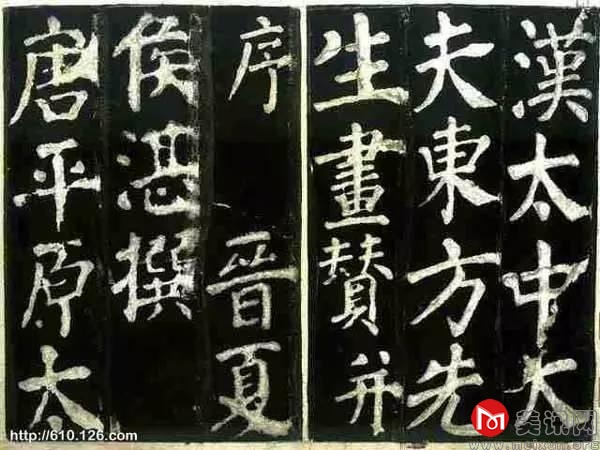 漢太中大
夫東方先
生畫賛并
序 晉夏
侯湛撰
唐平原太
http://610.126.com/
美讯网
www.meixun.org